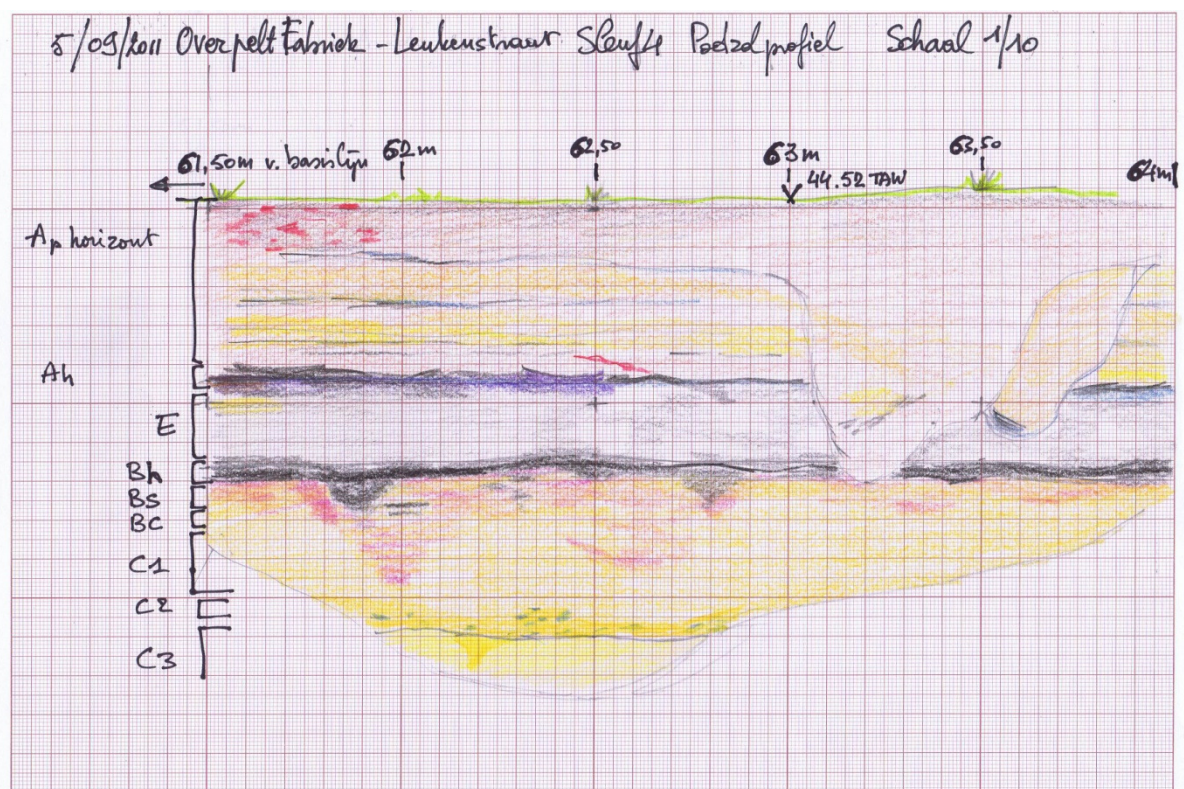 5/09/2011 Overpelt Fabriek - Leukenstraat Sleuf 4 Podzolprofiel Schaal 1/10
61,50m v. basislijn 62m 62,50 63m 63,50 64m
44.52 TAW
Ap horizont
Ah
E
Bh
BS
BC
C1
C2
C3